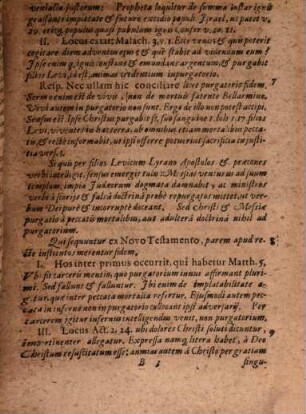 ventalia justorum: Propheta loquitur de summa instar ignis
grassante impietate & futuro exidio populi Israel, ut patet v.
20. eritq, populus quasi pabulum ignis Confer v. 20. 21.
II. Locus extat Malach. 3, v. 1. Ecce venit, & quis poterit
cogitare diem adventus ejus & quis stabit ad videndum eum?
Ipse enim q, ignis conflans & emundans argentum, & purgabit
filios Levi, hoc est, animas credentium in purgatorio.
Resp. Nec ullam hic conciliare licet purgatorio fidem.
Sermo enim est de vivis, cum de mortuis putet Bellarminus,
Vivi autem in purgatorio non sunt. Ergo de illo non potest accipi.
Sensus est Ipse Christus purgabit se, suo sanguine 1. Joh. 1.57 filios
Levi, h. e. viventes in hac terra, ab omnibus etiam mortalibus pecca-
tis, & recte informabit, ut ipsi offerre poterint sacrificia in justi-
tia
Si quis per filios Levi cum Lyrano Apostolus & præcones
verbi intelligit, sensus emergit talis Messias venturus ad suum
templum, impia Judæorum dogmata damnabit, & ac ministros
verbi à fastis & falsa doctrina probè repurgatos mittet, ut ver-
bum Dei pure & incorruptè doceant. Sed Christi & Messiæ
purgatio à peccatis mortalibus, aut adultera doctrina nihil ad
purgatorium.
Qui sequuntur ex Novo Testamento, parem apud re- 8
cte instituto, merentur fidem,
I. Hos inter primus occurrit, qui habetur Matth. 5,
Ubi sit carceris mentio, quo purgatorium innui affirmant pluri-
mi. Sed fallunt & falluntur. Ibi enim de implacabilitate a-
gitur, quæ inter peccata mortalia refertur. Ejusmodi autem pec-
cata in inferno non in purgatorio collocant ipsi adversarii. Per
carcerem igitur infernus intelligendus venit, non purgatorium,
III. Locus Act. 2, 24. ubi dolores Christi soluti dicuntur, 9
impertinenter allegatur. Expressa namq, litera habet, à Deo
Christum resuscitatum esse; animas autem à Christo per gratiam
B 3 singu-